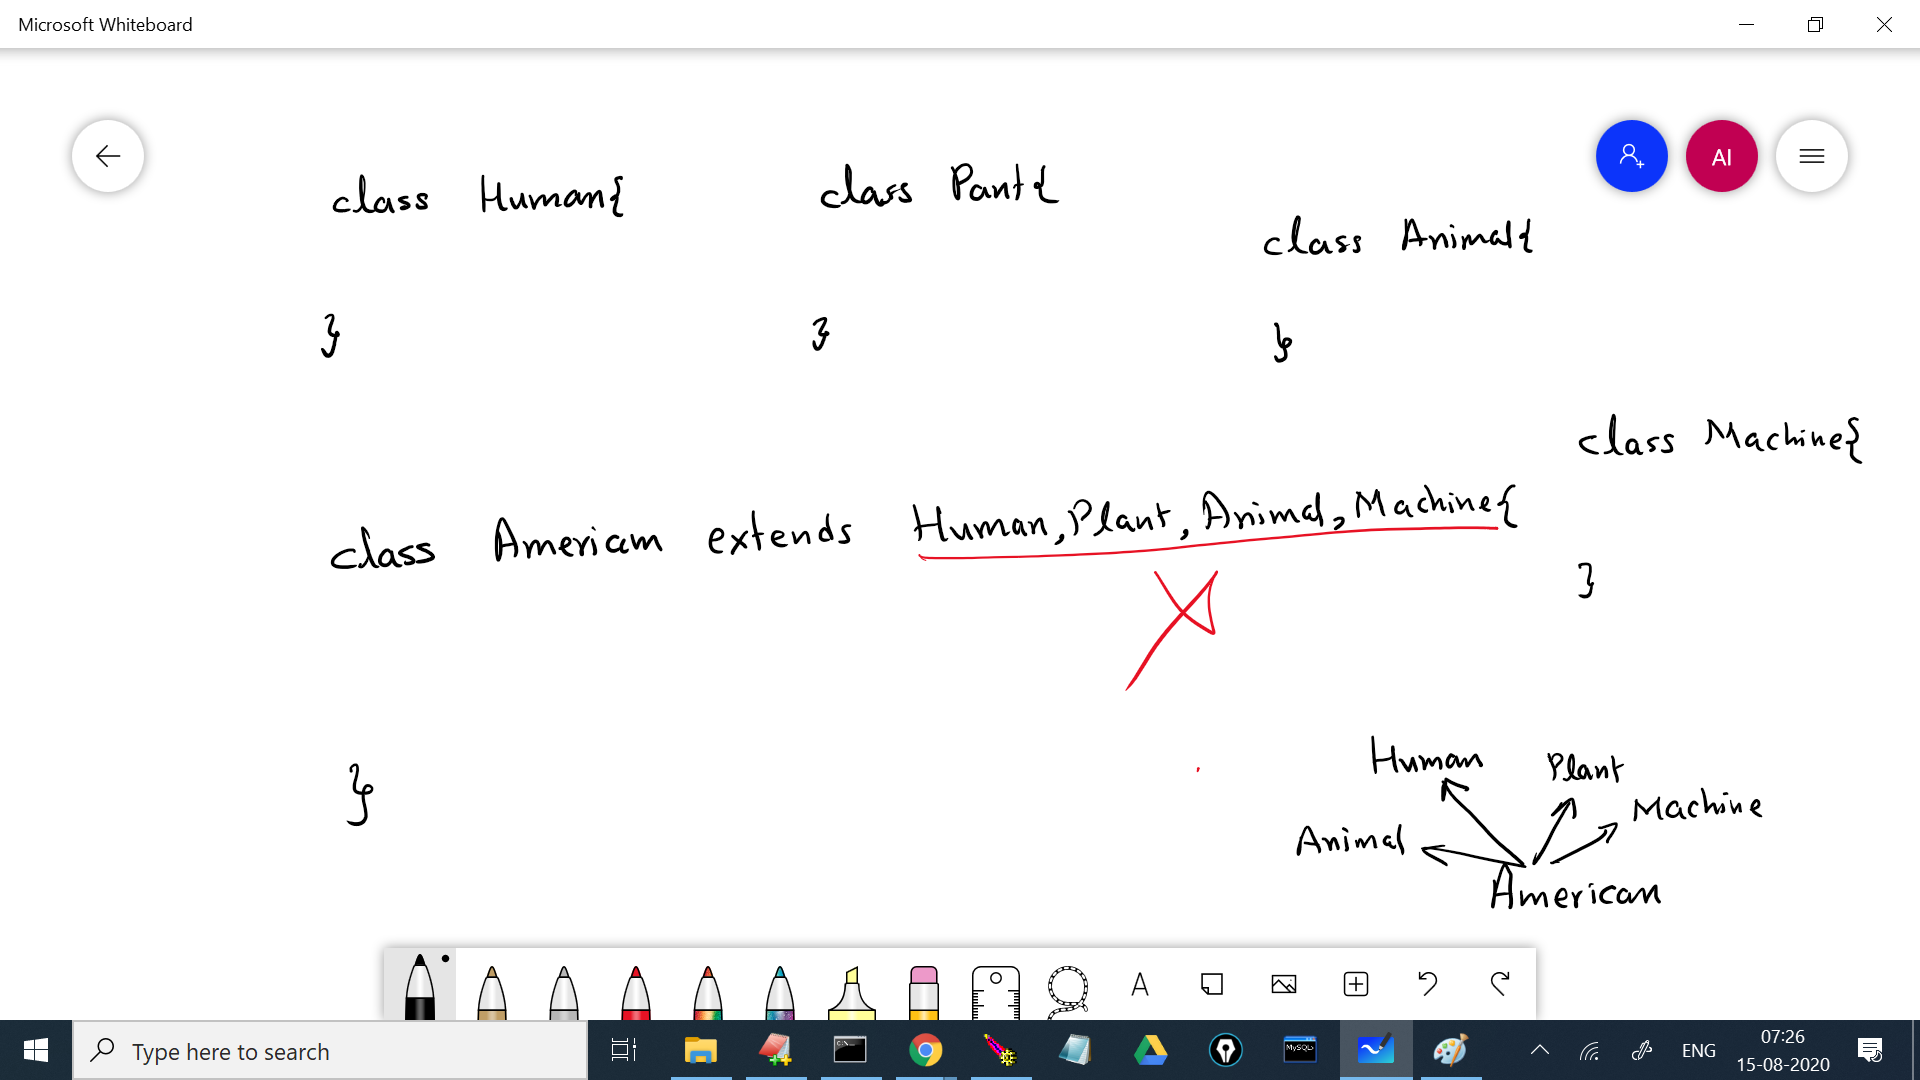 Microsoft Whiteboard
AI
class Human{
class Pant{
class Animal{
}
}
}
class Machine{
class American extends Human, Plant, Animal, Machine{
}
}
Human
Plant
Machine
Animal
American
A
Type here to search
C:\
MySQL
ENG
07:26
15-08-2020